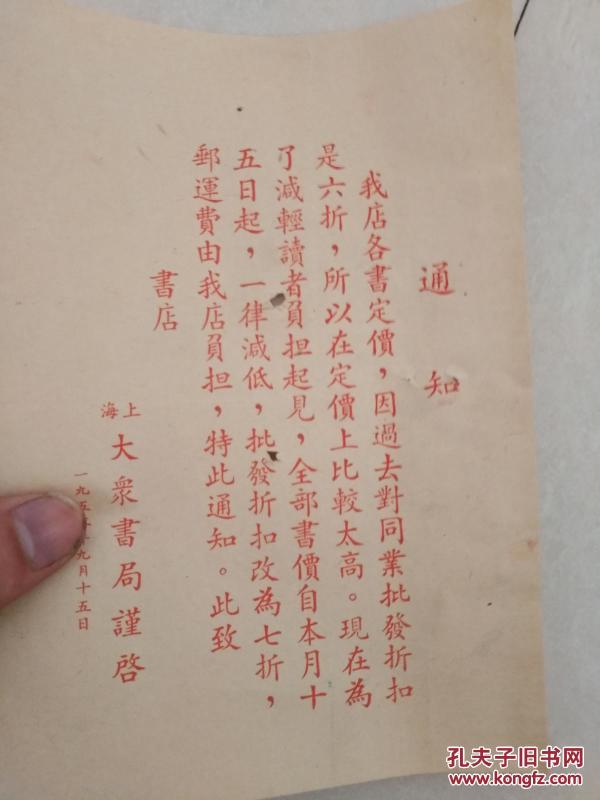 通知
我店各書定價，因過去對同業批發折扣
是六折，所以在定價上比較太高。現在為
了減輕讀者負担起見，全部書價自本月十
五日起，一律減低，批發折扣改為七折，
郵運費由我店負担，特此通知。此致
書店
上海大衆書局謹啓
一九五年九月十五日
孔夫子旧书网
www.kongfz.com